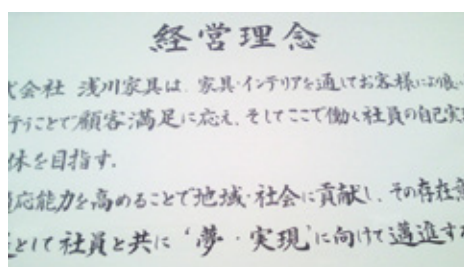 経営理念
式会社 浅川家具は、家具・インテリアを通してお客様により良い
行うことで顧客満足に応え、そしてここで働く社員の自己実
体を目指す。
応能力を高めることで地域・社会に貢献し、その存在意
として社員と共に'夢・実現'に向けて邁進する